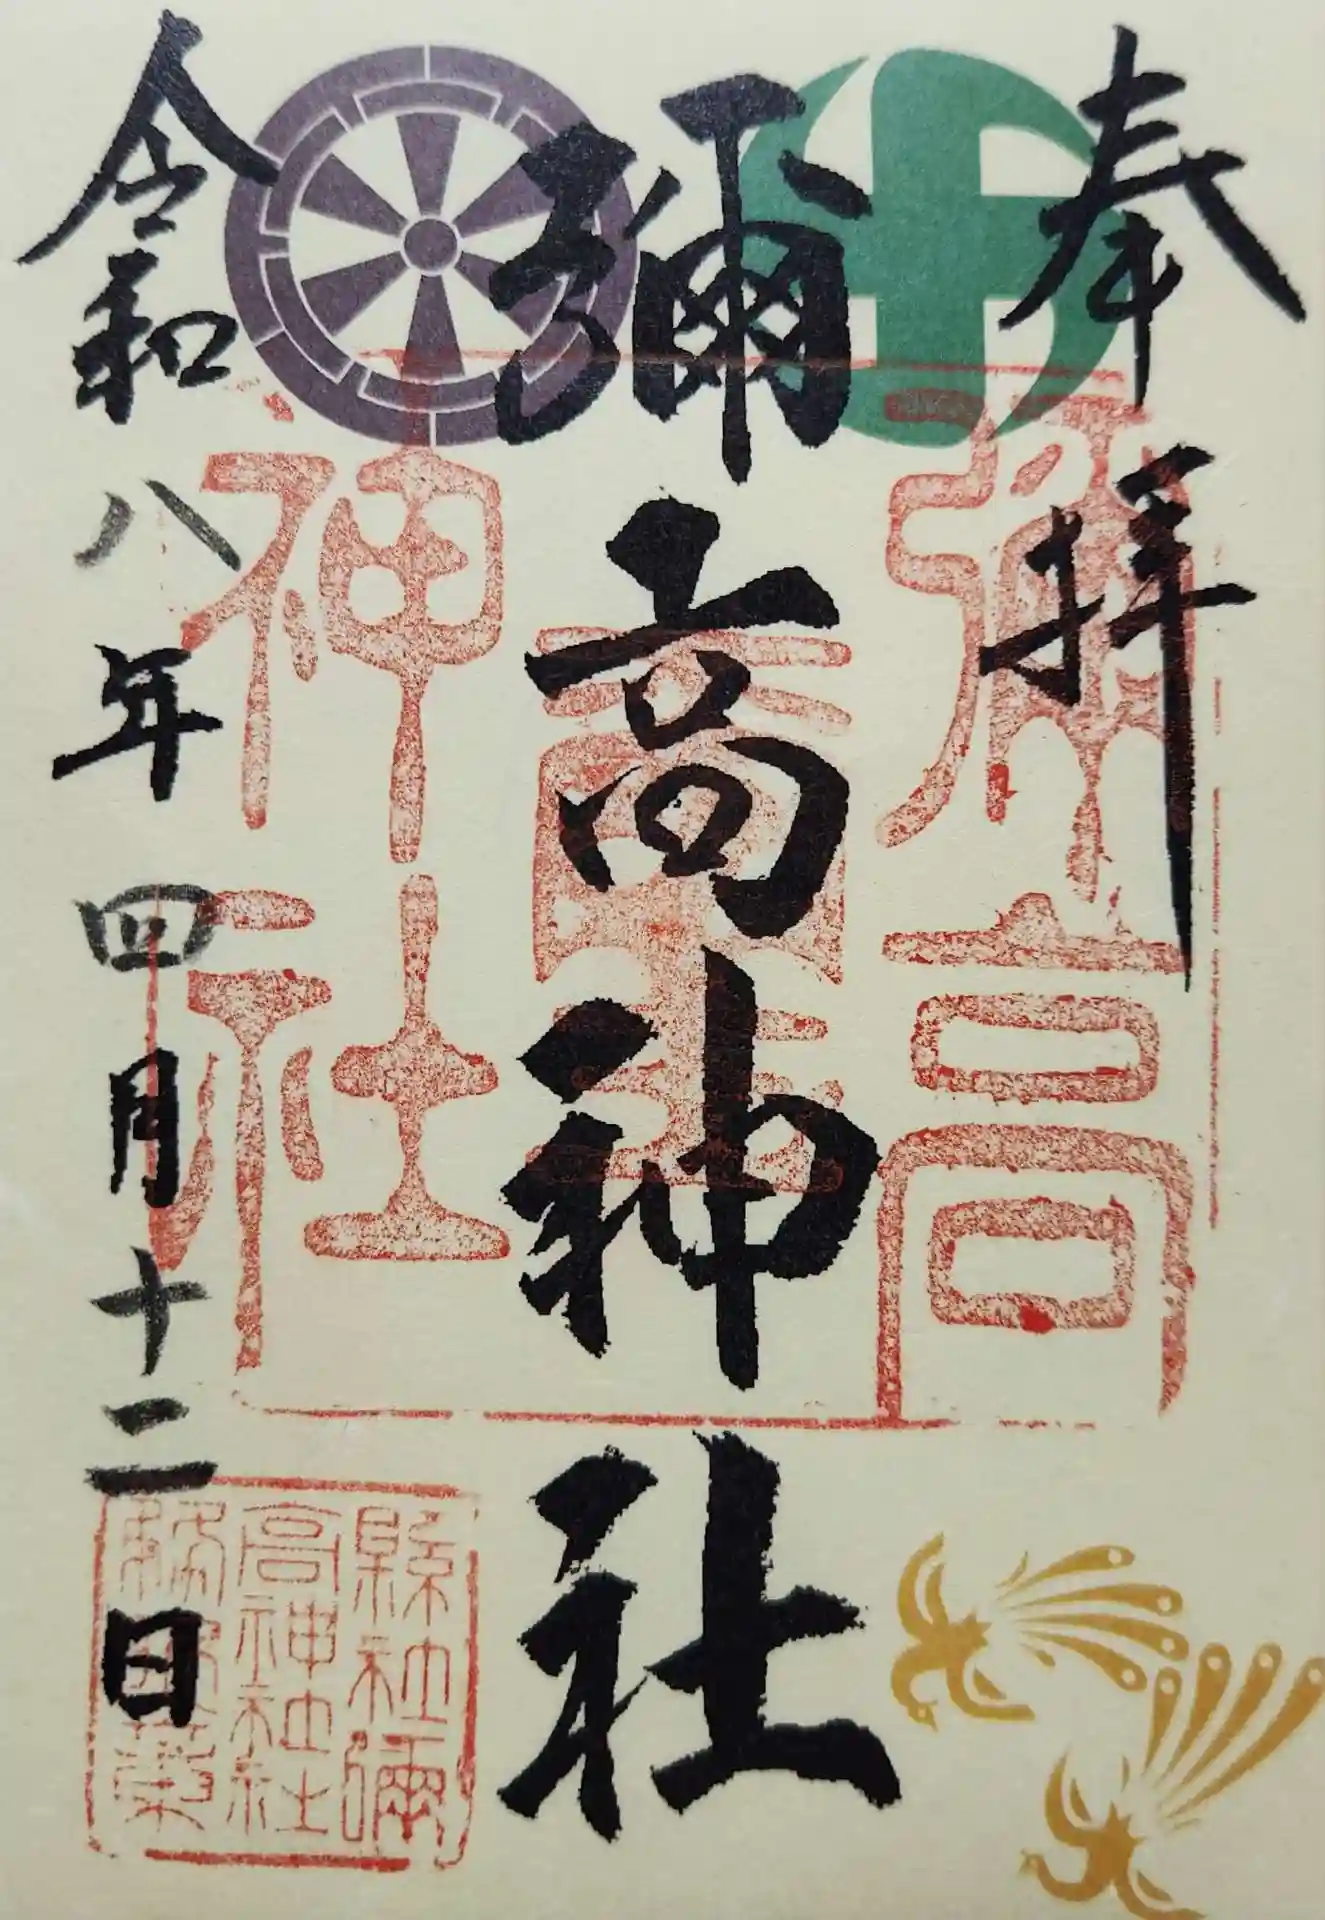 奉拝
彌高神社
令和八年四月十二日
彌高
神社
縣社彌
高神社社
務所